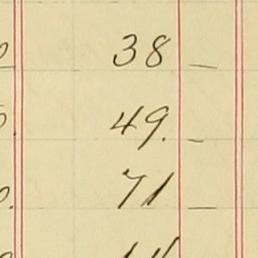 38 —
49. —
71 —